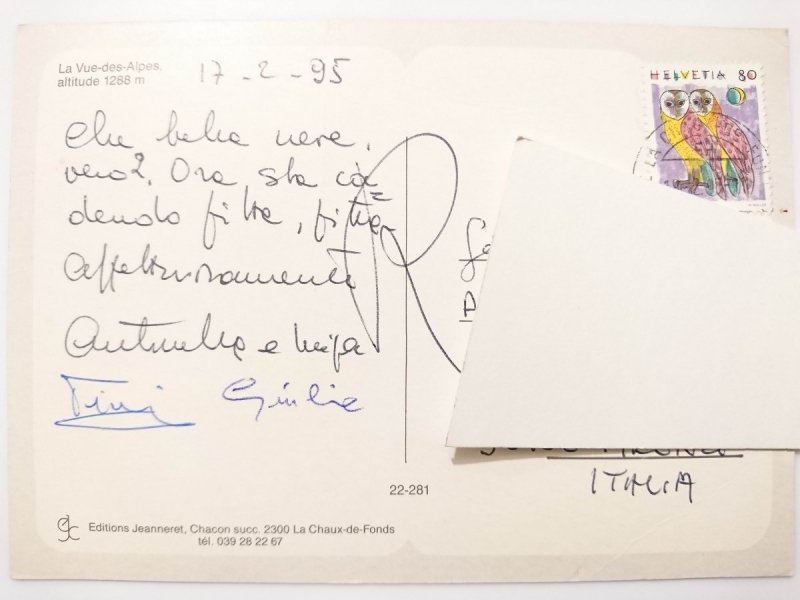 La Vue-des-Alpes,
altitude 1288 m
17-2-95
Che bella neve,
vero? Ora sta ca=
dendo fitta, fitta
Affettuosamente
Antonella e
Giulia
HELVETIA 80
ITALIA
22-281
Editions Jeanneret, Chacon succ. 2300 La Chaux-de-Fonds
tél. 039 28 22 67